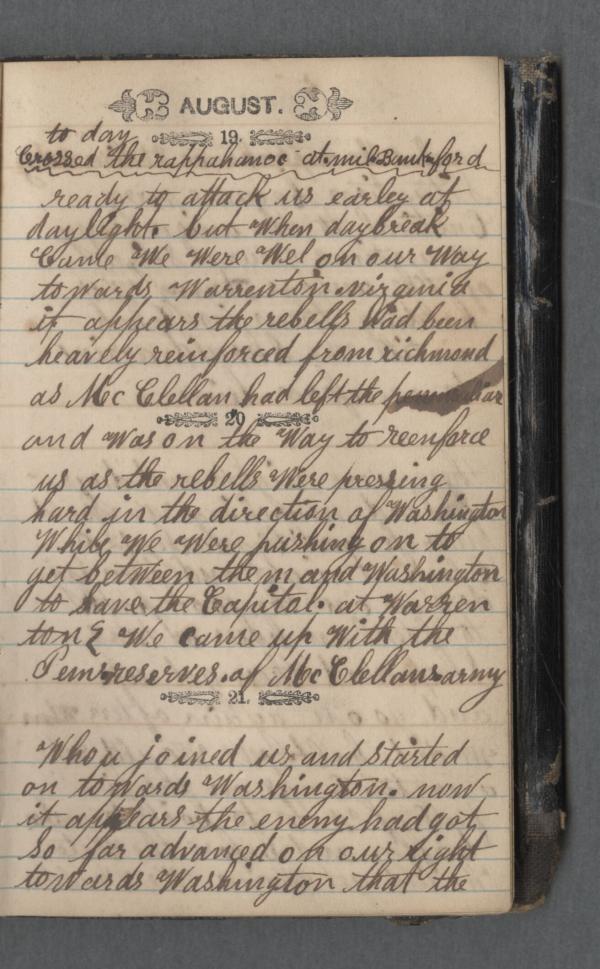 AUGUST.
to day
19.
Crossed the rappahanoc at mil Bank ford
ready to attack us earley at
daylight. but When daybreak
Came We Were Wel on our Way
towards Warrenton virginia
it appears the rebells had been
heavely reinforced from richmond
as Mc Clellan had left the
20
and Was on the Way to reenforce
us as the rebells Were pressing
hard in the direction of Washington
While We Were pushing on to
get between them and Washington
to save the Capitol. at Warren
ton We came up With the
reserves. of Mc Clellans army
21.
Whou joined us and started
on towards Washington. now
it appears the enemy had got
so far advanced on our right
towards Washington that the